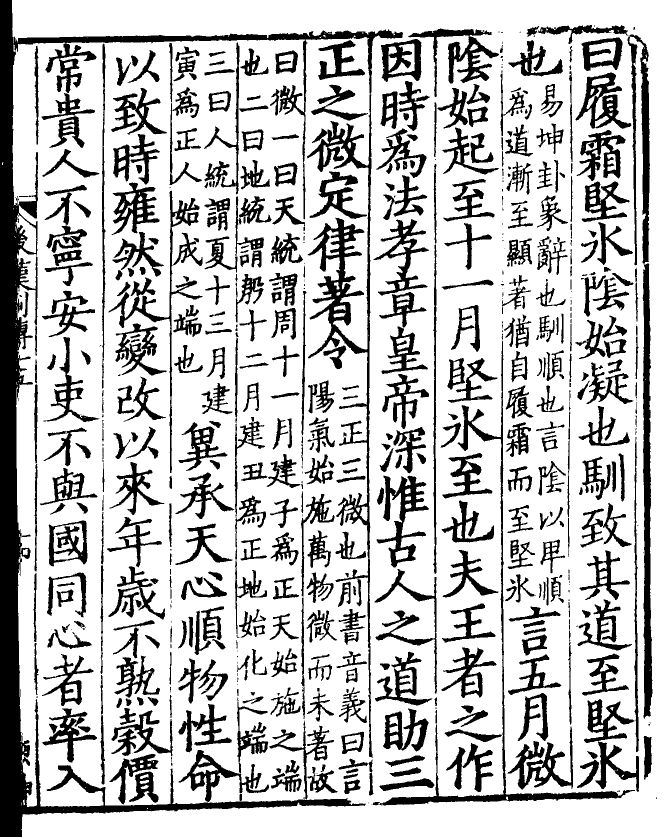 曰履霜堅氷隂始凝也馴致其道至堅氷
也
易坤卦象辭也馴順也言隂以卑順
爲道漸至顯著猶自履霜而至堅氷
言五月微
隂始起至十一月堅氷至也夫王者之作
因時爲法孝章皇帝深惟古人之道助三
正之微定律著令
三正三微也前書音義曰言
陽氣始施萬物微而未著故
曰微一曰天統謂周十一月建子爲正天始施之端
也二曰地統謂殷十二月建丑爲正地始化之端也
三曰人統謂夏十三月建
寅爲正人始成之端也
兾承天心順物性命
以致時雍然從變改以來年歲不熟穀價
常貴人不寧安小吏不與國同心者率入
後漢列傳十五